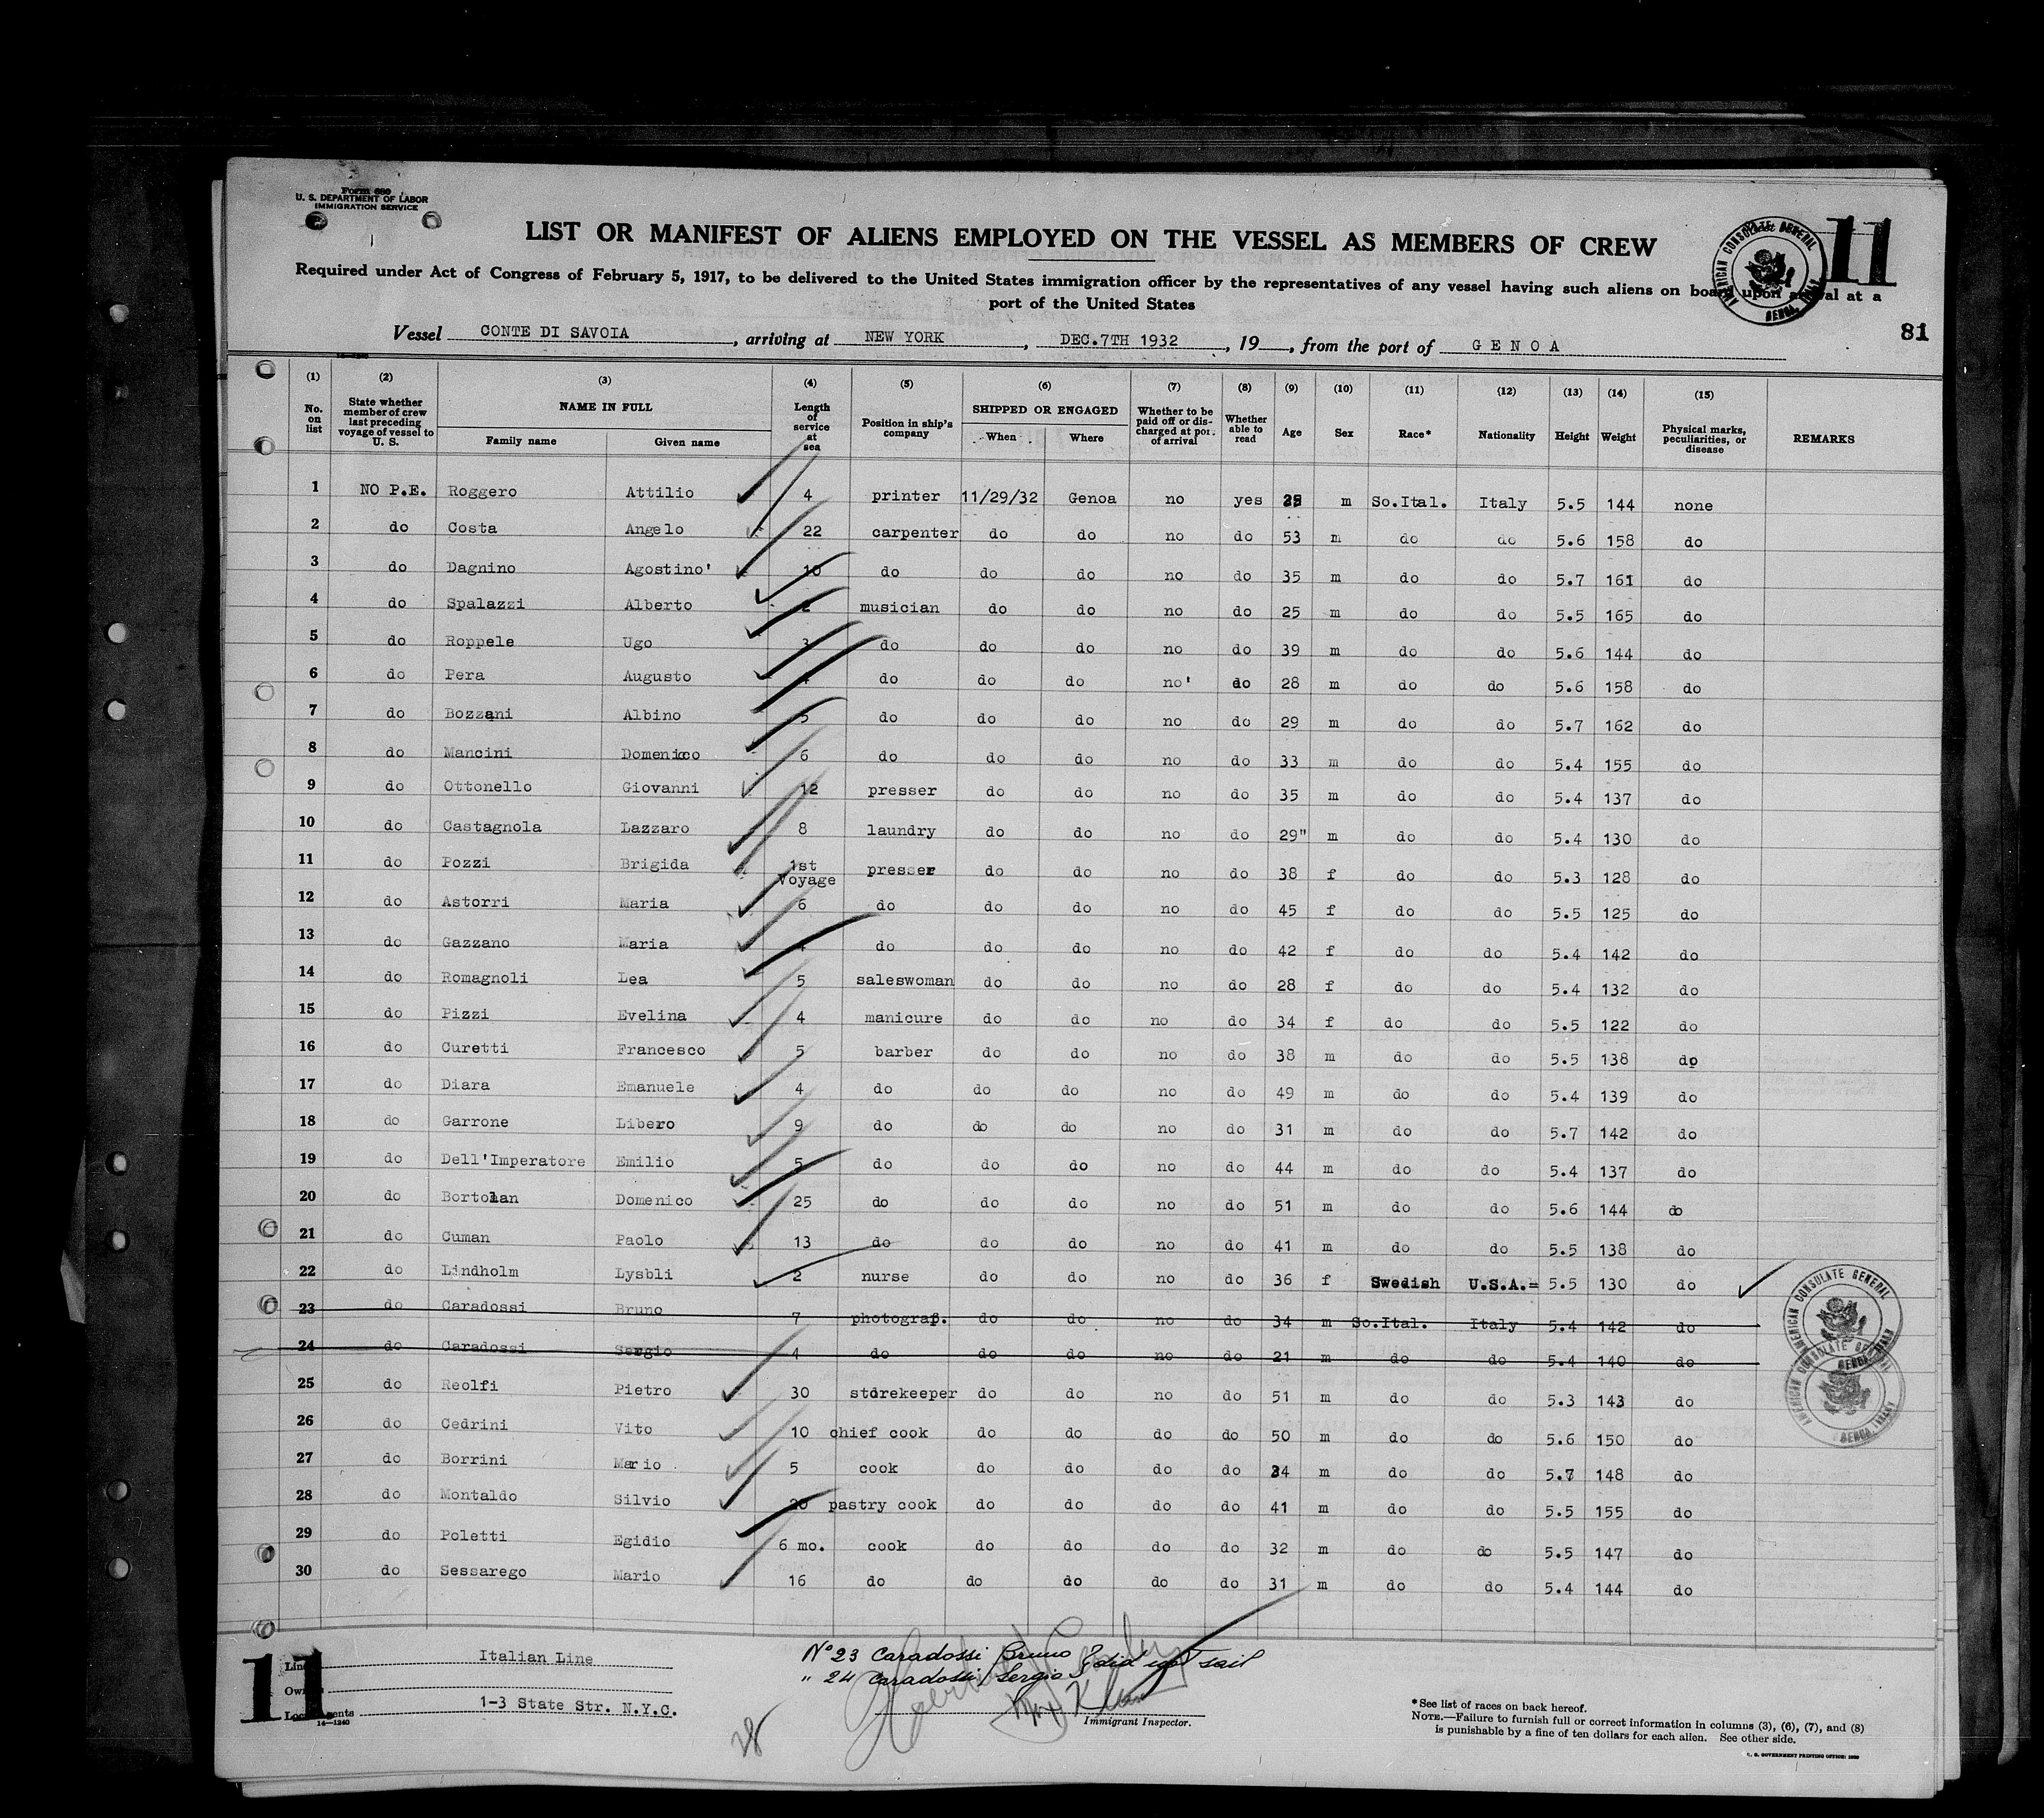 Form 680
U. S. DEPARTMENT OF LABOR
IMMIGRATION SERVICE
LIST OR MANIFEST OF ALIENS EMPLOYED ON THE VESSEL AS MEMBERS OF CREW
11
AMERICAN CONSULATE GENERAL GENOA, ITALY
Required under Act of Congress of February 5, 1917, to be delivered to the United States immigration officer by the representatives of any vessel having such aliens on board upon arrival at a
port of the United States
81
Vessel CONTE DI SAVOIA, arriving at NEW YORK, DEC.7TH 1932, 19, from the port of GENOA
(1) (2) (3) (4) (5) (6) (7) (8) (9) (10) (11) (12) (13) (14) (15)
No. on list State whether member of crew last preceding voyage of vessel to U. S. NAME IN FULL Family name Given name Length of service at sea Position in ship's company SHIPPED OR ENGAGED When Where Whether to be paid off or discharged at port of arrival Whether able to read Age Sex Race* Nationality Height Weight Physical marks, peculiarities, or disease REMARKS
1 NO P.E. Roggero Attilio 4 printer 11/29/32 Genoa no yes m So.Ital. Italy 5.5 144 none
2 do Costa Angelo 22 carpenter do do no do 53 m do do 5.6 158 do
3 do Dagnino Agostino' 10 do do do no do 35 m do do 5.7 161 do
4 do Spalazzi Alberto 2 musician do do no do 25 m do do 5.5 165 do
5 do Roppele Ugo 3 do do do no do 39 m do do 5.6 144 do
6 do Pera Augusto 4 do do do no' do 28 m do do 5.6 158 do
7 do Bozzani Albino 5 do do do no do 29 m do do 5.7 162 do
8 do Mancini Domenico 6 do do do no do 33 m do do 5.4 155 do
9 do Ottonello Giovanni 12 presser do do no do 35 m do do 5.4 137 do
10 do Castagnola Lazzaro 8 laundry do do no do 29" m do do 5.4 130 do
11 do Pozzi Brigida 1st Voyage presser do do no do 38 f do do 5.3 128 do
12 do Astorri Maria 6 do do do no do 45 f do do 5.5 125 do
13 do Gazzano Maria 4 do do do no do 42 f do do 5.4 142 do
14 do Romagnoli Lea 5 saleswoman do do no do 28 f do do 5.4 132 do
15 do Pizzi Evelina 4 manicure do do no do 34 f do do 5.5 122 do
16 do Curetti Francesco 5 barber do do no do 38 m do do 5.5 138 do
17 do Diara Emanuele 4 do do do no do 49 m do do 5.4 139 do
18 do Garrone Libero 9 do do do no do 31 m do do 5.7 142 do
19 do Dell'Imperatore Emilio 5 do do do no do 44 m do do 5.4 137 do
20 do Bortolan Domenico 25 do do do no do 51 m do do 5.6 144 do
21 do Cuman Paolo 13 do do do no do 41 m do do 5.5 138 do
22 do Lindholm Lysbli 2 nurse do do no do 36 f Swedish U.S.A.= 5.5 130 do
23 do Caradossi Bruno 7 photograp. do do no do 34 m So.Ital. Italy 5.4 142 do
24 do Caradossi Sergio 4 do do do no do 21 m do do 5.4 140 do
25 do Reolfi Pietro 30 storekeeper do do no do 51 m do do 5.3 143 do
26 do Cedrini Vito 10 chief cook do do do do 50 m do do 5.6 150 do
27 do Borrini Mario 5 cook do do do do 24 m do do 5.7 148 do
28 do Montaldo Silvio 20 pastry cook do do do do 41 m do do 5.5 155 do
29 do Poletti Egidio 6 mo. cook do do do do 32 m do do 5.5 147 do
30 do Sessarego Mario 16 do do do do do 31 m do do 5.4 144 do
AMERICAN CONSULATE GENERAL GENOA, ITALY
AMERICAN CONSULATE GENERAL GENOA, ITALY
11
Line Italian Line
Owners
Local Agents 1-3 State Str. N.Y.C.
14—1240
Nº 23 Caradossi Bruno } did not sail
" 24 Caradossi Sergio
28
Immigrant Inspector.
*See list of races on back hereof.
NOTE.—Failure to furnish full or correct information in columns (3), (6), (7), and (8)
is punishable by a fine of ten dollars for each alien. See other side.
U. S. GOVERNMENT PRINTING OFFICE: